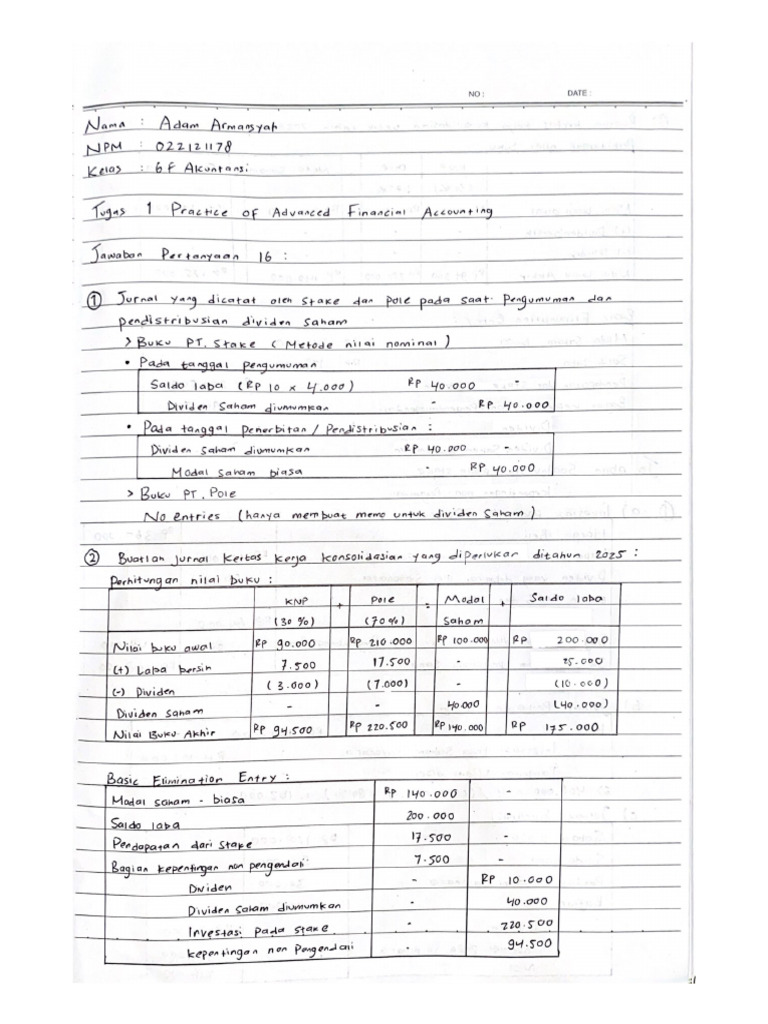 NO :
DATE :
Nama : Adam Armansyah
NPM : 022121178
Kelas : 6F Akuntansi
Tugas 1 Practice of Advanced Financial Accounting
Jawaban Pertanyaan 16 :
① Jurnal yang dicatat oleh Stake dan Pole pada saat Pengumuman dan
pendistribusian dividen saham
> Buku PT. Stake ( Metode nilai nominal )
• Pada tanggal pengumuman
Saldo laba (RP 10 x 4.000) RP 40.000 -
Dividen Saham diumumkan - RP. 40.000
• Pada tanggal Penerbitan / Pendistribusian :
Dividen saham diumumkan RP 40.000 -
Modal saham biasa - RP 40.000
> Buku PT. Pole
No entries (hanya membuat memo untuk dividen saham)
② Buatlan jurnal kertas kerja konsolidasian yang diperlukan ditahun 2025 :
Perhitungan nilai buku :
KNP + Pole = Modal + Saldo laba
(30 %) (70%) Saham
Nilai buku awal RP 90.000 RP 210.000 RP 100.000 RP 200.000
(+) Laba bersih 7.500 17.500 - 25.000
(-) Dividen (3.000) (7.000) - (10.000)
Dividen saham - - 40.000 (40.000)
Nilai Buku Akhir RP 94.500 RP 220.500 RP 140.000 RP 175.000
Basic Elimination Entry :
Modal saham - biasa RP 140.000 -
Saldo laba 200.000
Pendapatan dari stake 17.500 -
Bagian kepentingan non pengendali 7.500 -
Dividen - RP 10.000
Dividen saham diumumkan - 40.000
Investasi pada stake - 220.500
kepentingan non Pengendali - 94.500